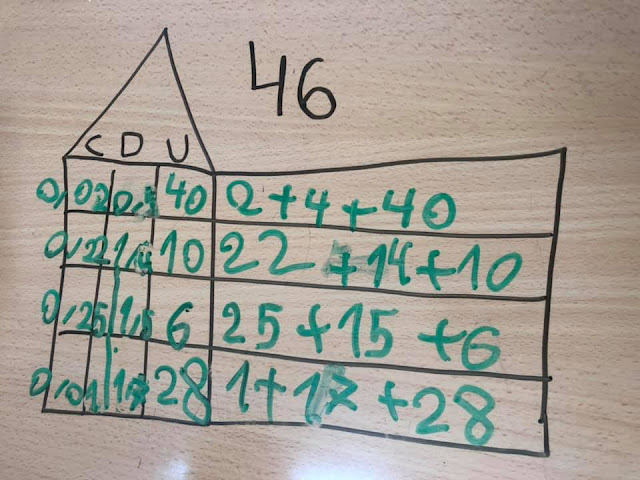 46
C D U
0,02 0,4 40 2+4+40
0,22 1,4 10 22+14+10
0,25 1,5 6 25+15+6
0,01 1,7 28 1+17+28